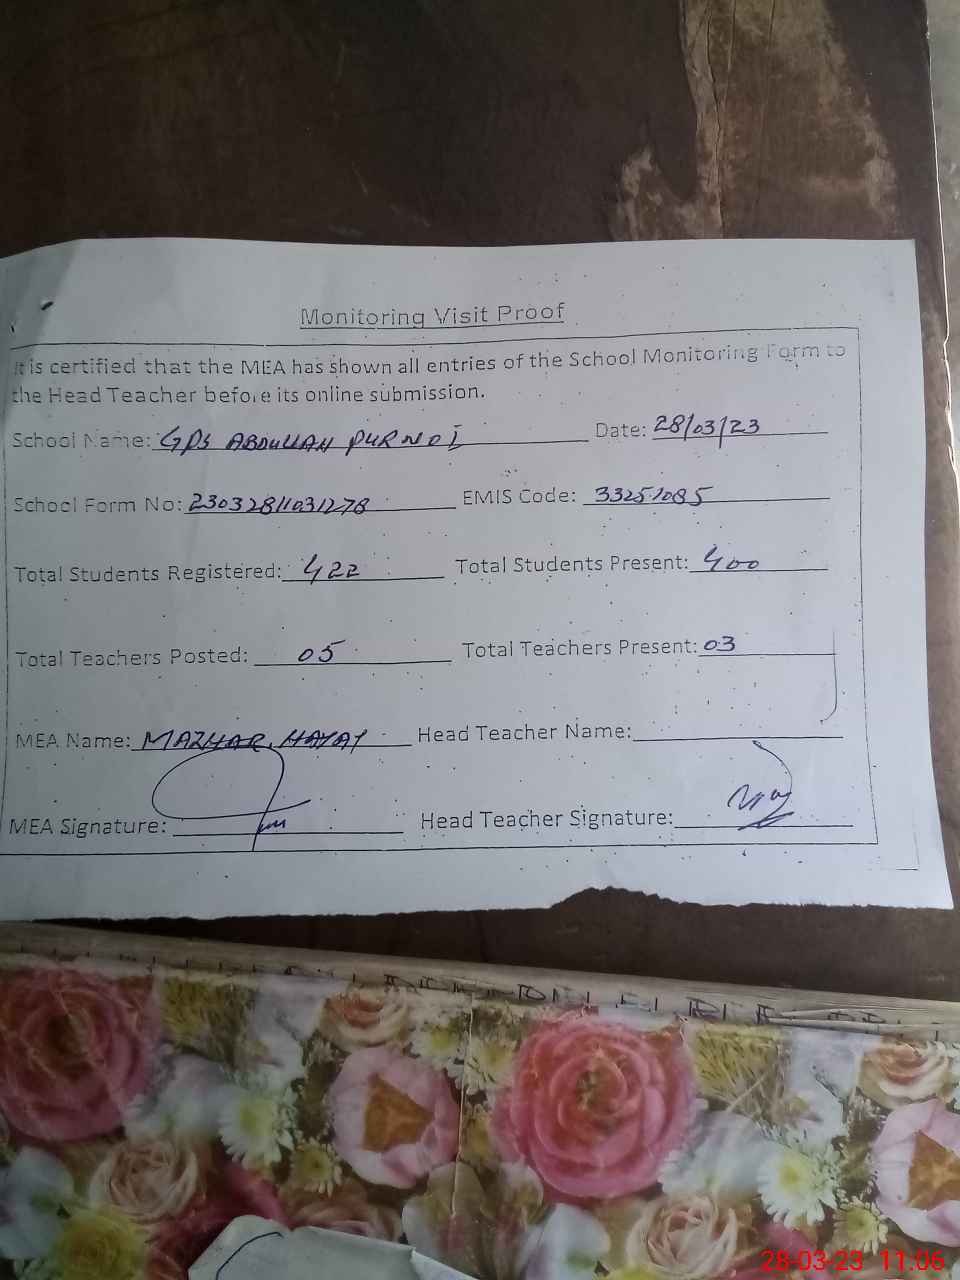 Monitoring Visit Proof
It is certified that the MEA has shown all entries of the School Monitoring Form to
the Head Teacher before its online submission.
School Name: GPS ABDULLAH PUR NOI Date: 28/03/23
School Form No: 23032811031278 EMIS Code: 33251085
Total Students Registered: 422 Total Students Present: 400
Total Teachers Posted: 05 Total Teachers Present: 03
MEA Name: MAZHAR HAYAT Head Teacher Name:
MEA Signature: Head Teacher Signature:
28-03-23 11:06